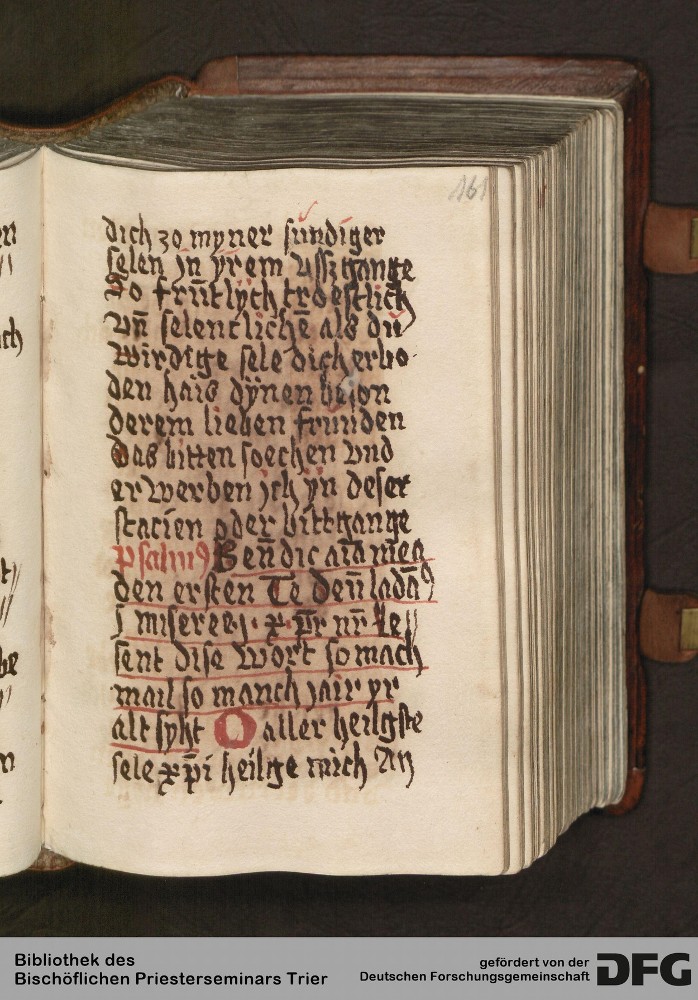 161
dich zo myner sundiger
selen in yrem vsszgange
So fruntlych troestlich
vn̄ selenclichē als du
wirdige sele dich erbo
den hais dynen beson
derem lieben frunden
Das bitten soechen vnd
erwerben ich yn deser
stacien oder bittgange
psalmꝰ Benēdic aīa mea
den ersten Te deū ladaꝰ
j miserere j · x · pr̄ nr̄ le
sent dise wort so mach
mail so manch jair yr
alt sykt O aller heilgste
sele xp̄i heilge mich An
Bibliothek des
Bischöflichen Priesterseminars Trier
gefördert von der
Deutschen Forschungsgemeinschaft
DFG